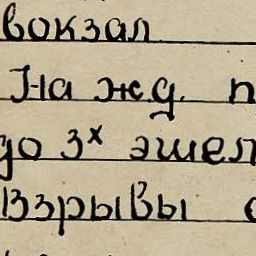 вокзал
На ж.д. п
до 3х эшел
Взрывы